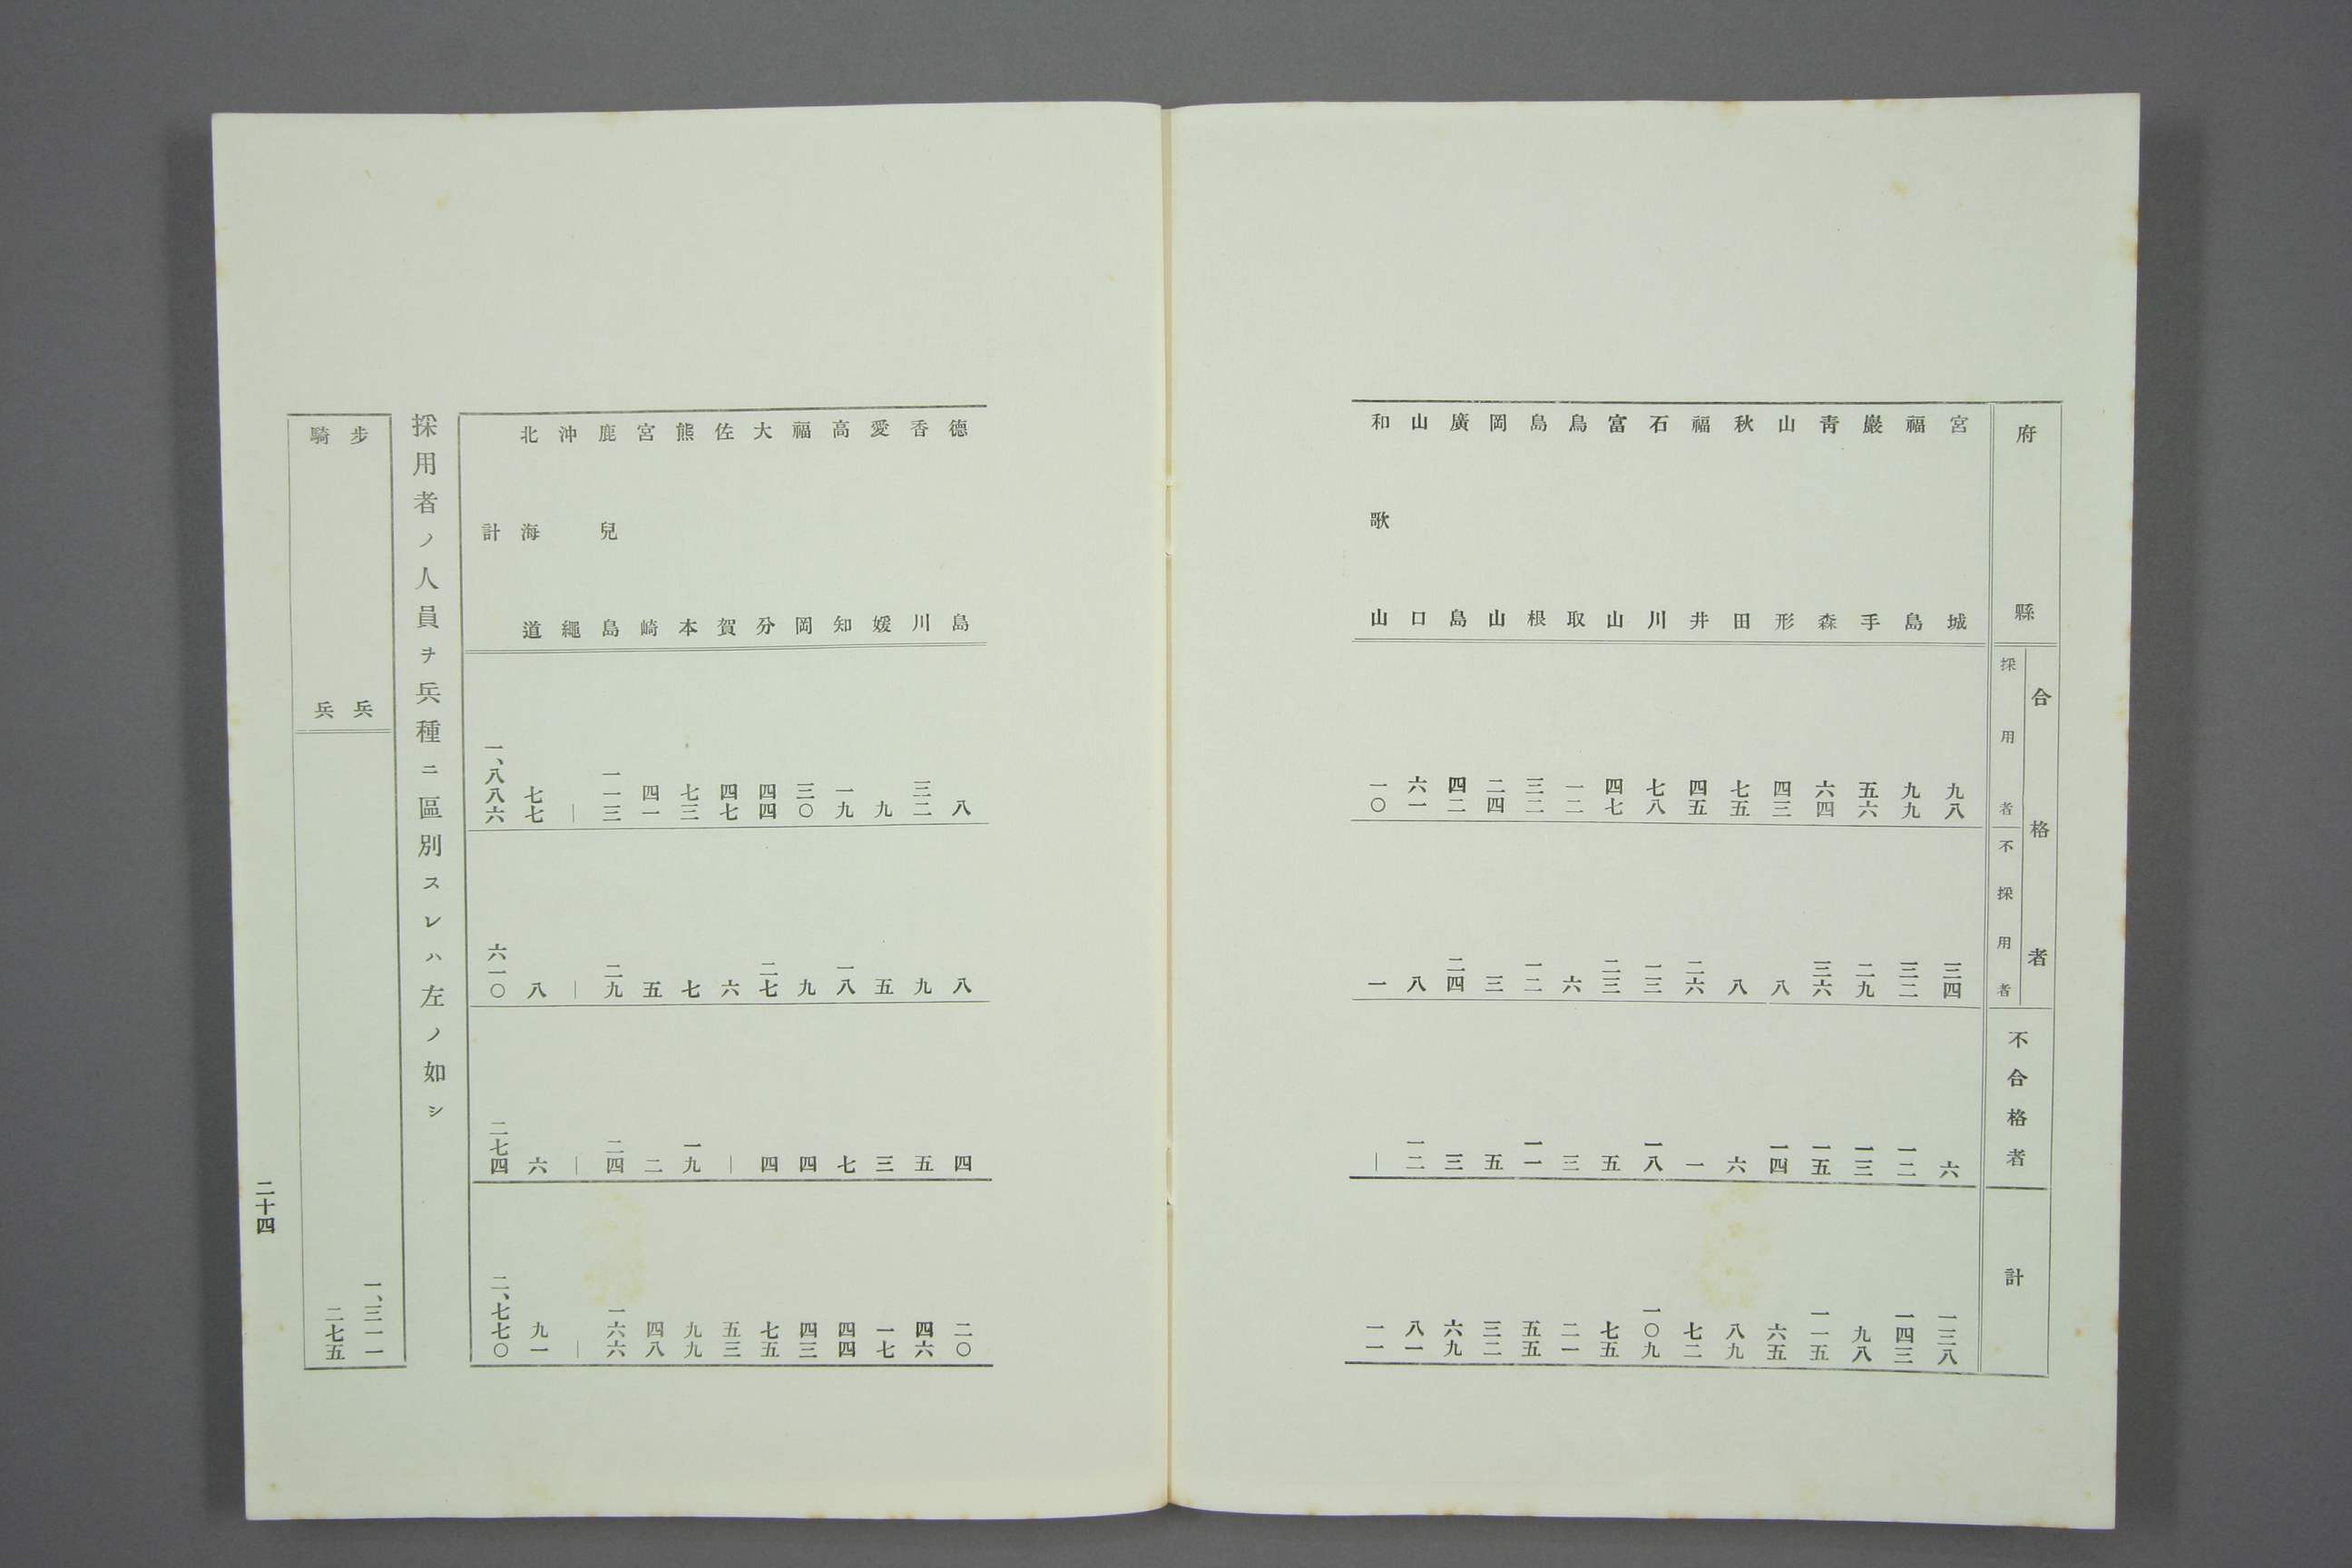 府縣 合格者 採用者 不採用者 不合格者 計
宮城 九八 三四 六 一三八
福島 九九 三二 一二 一四三
巖手 五六 二九 一三 九八
靑森 六四 三六 一五 一一五
山形 四三 八 一四 六五
秋田 七五 八 六 八九
福井 四五 二六 一 七二
石川 七八 一三 一八 一〇九
富山 四七 二三 五 七五
鳥取 一二 六 三 二一
島根 三二 一二 一一 五五
岡山 二四 三 五 三二
廣島 四二 二四 三 六九
山口 六一 八 一二 八一
和歌山 一〇 一 ｜ 一一
德島 八 八 四 二〇
香川 三二 九 五 四六
愛媛 九 五 三 一七
高知 一九 一八 七 四四
福岡 三〇 九 四 四三
大分 四四 二七 四 七五
佐賀 四七 六 ｜ 五三
熊本 七三 七 一九 九九
宮崎 四一 五 二 四八
鹿兒島 一一三 二九 二四 一六六
沖繩 ｜ ｜ ｜ ｜
北海道 七七 八 六 九一
計 一、八八六 六一〇 二七四 二、七七〇
採用者ノ人員ヲ兵種ニ區別スレハ左ノ如シ
步兵 一、三一一
騎兵 二七五
二十四